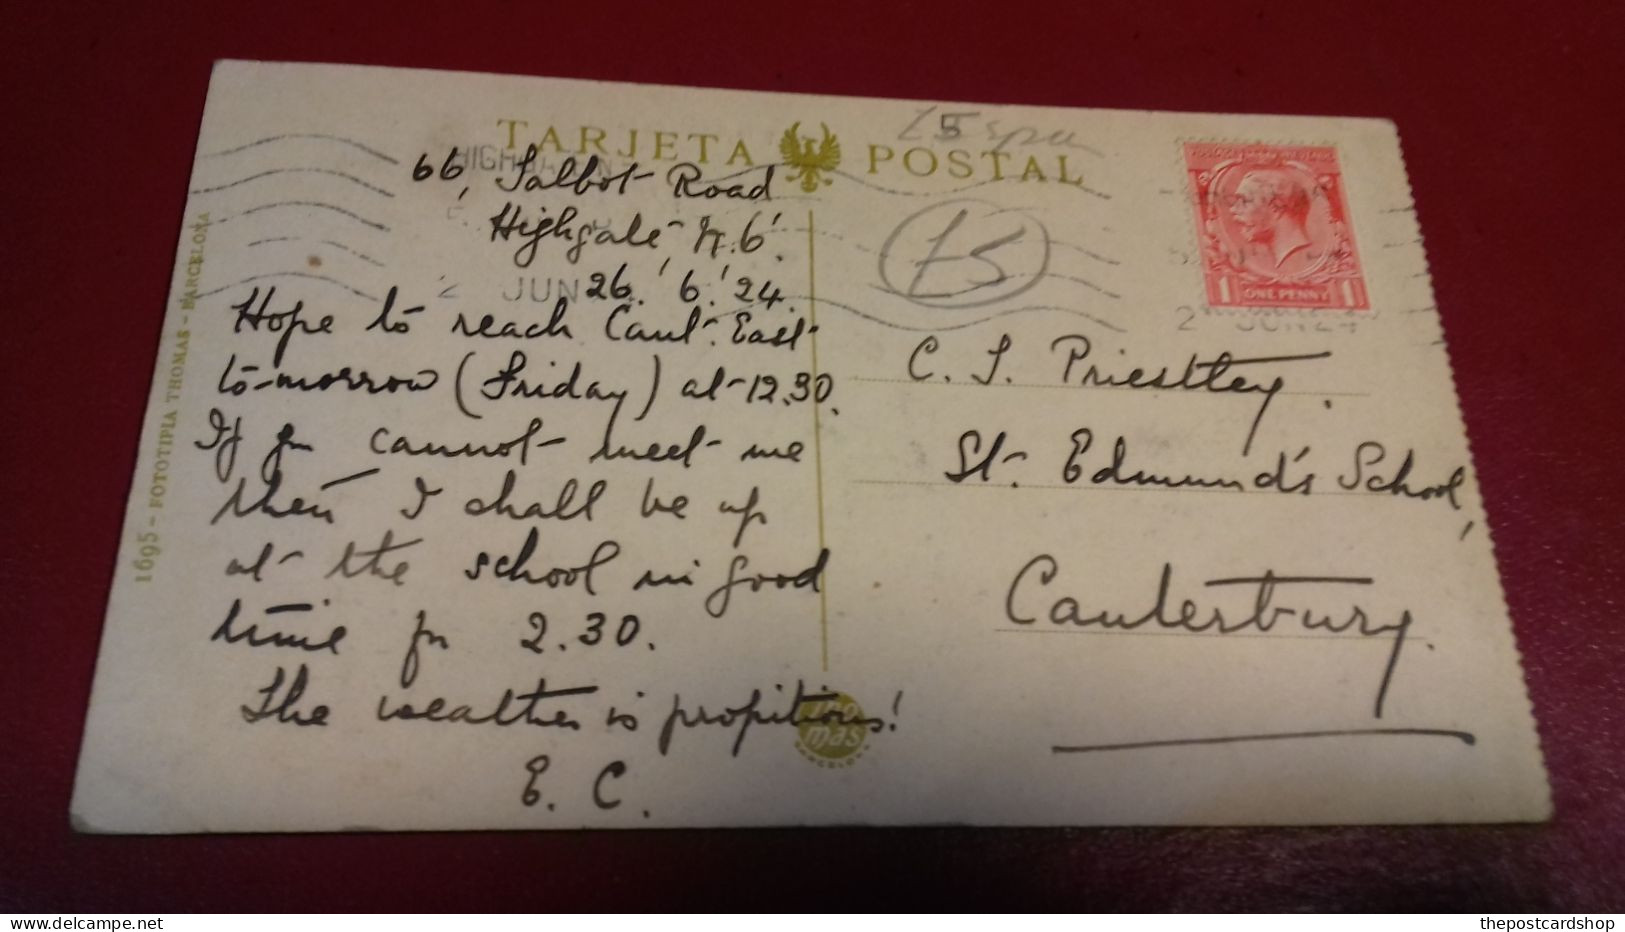 TARJETA POSTAL
66, Talbot Road
Highgate, N.6.
26.'6.'24.
Hope to reach Cant. East
to-morrow (Friday) at 12.30.
If you cannot meet me
then I shall be up
at the school in good
time for 2.30.
The weather is propitious!
E. C.
1695 - FOTOTIPIA THOMAS - BARCELONA
15
ONE PENNY
1 1
JUN
2 JUN 24
C. J. Priestley.
St. Edmund's School,
Canterbury.
mas
delcampe.net
thepostcardshop